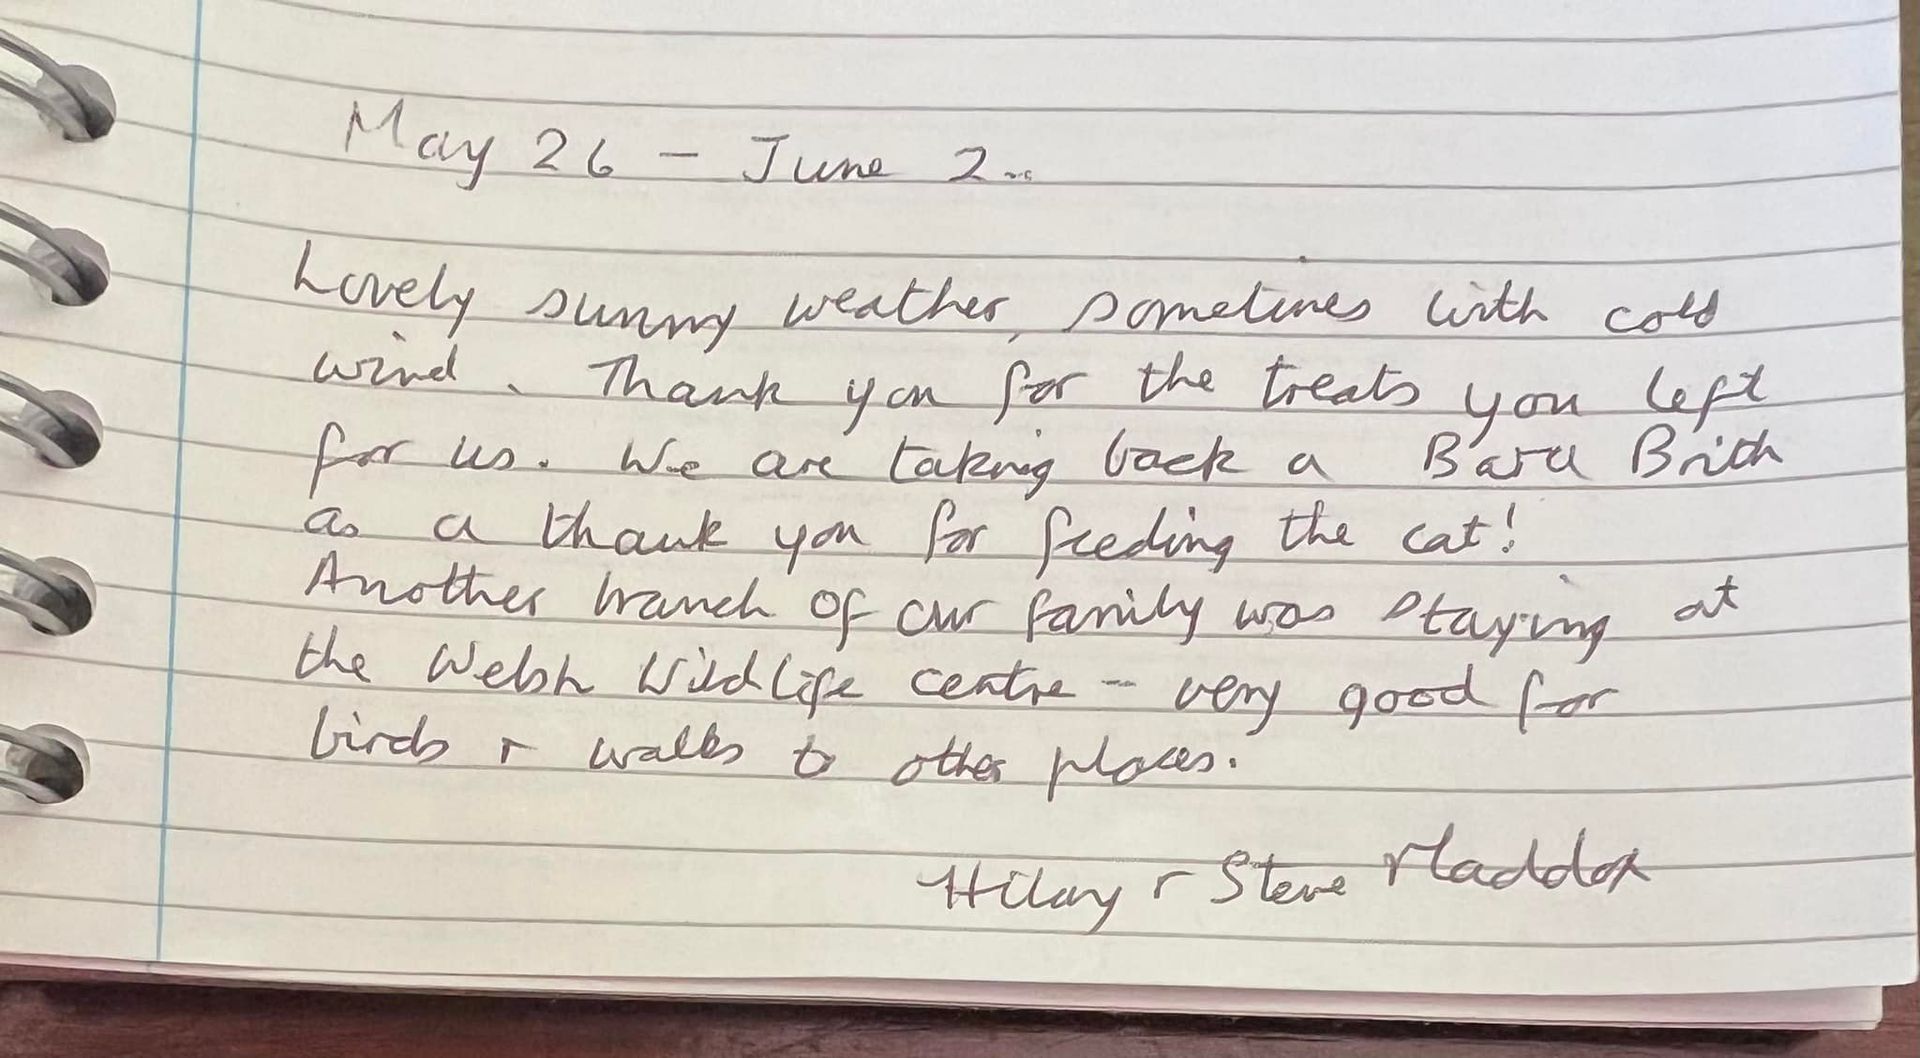 May 26 - June 2..
Lovely sunny weather, sometimes with cold
wind. Thank you for the treats you left
for us. We are taking back a Bara Brith
as a thank you for feeding the cat!
Another branch of our family was staying at
the Welsh Wildlife centre - very good for
birds + walks to other places.
Hilary + Steve Maddox